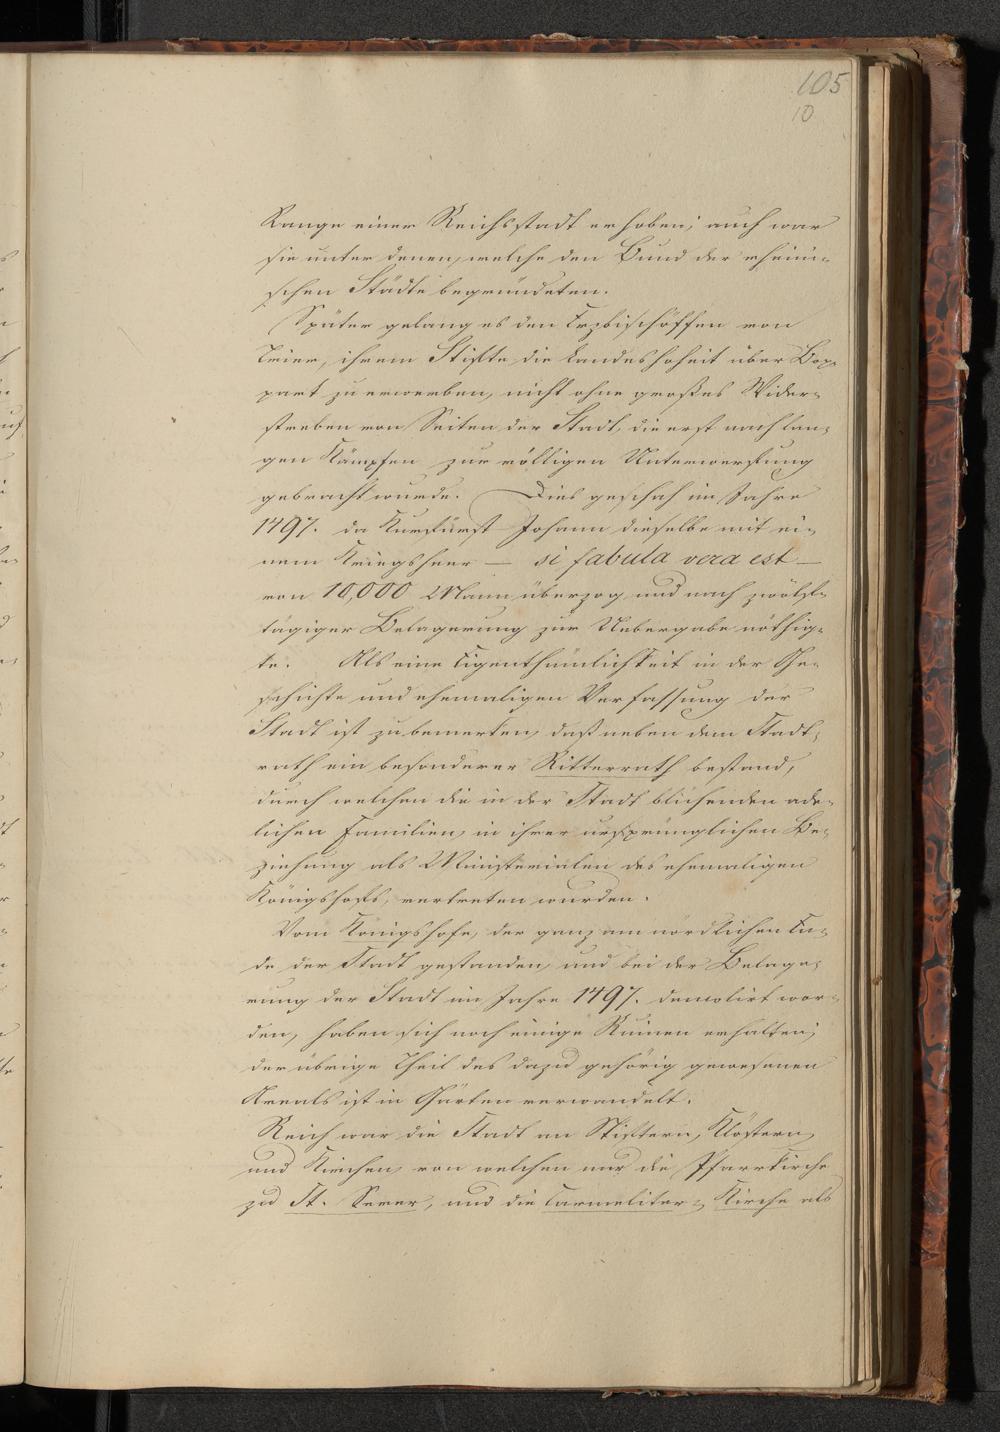 105
10
Range einer Reichsstadt erhoben; auch war
sie unter denen, welche den Bund der rheini-
schen Städte begründeten.
Später gelang es den Erzbischöffen von
Trier, ihrem Stifte die Landeshoheit über Bop-
part zu erwerben, nicht ohne großes Wider-
streben von Seiten der Stadt, die erst nach lan-
gen Kämpfen zur völligen Unterwerfung
gebracht wurde. Dies geschah im Jahre
1497. da Kurfürst Johann dieselbe mit ei-
nem Kriegsheer — si fabula vera est —
von 10,000 Mann überzog und nach zwölf-
tägiger Belagerung zur Uebergabe nöthig-
te. Als eine Eigenthümlichkeit in der Ge-
schichte und ehemaligen Verfassung der
Stadt ist zu bemerken, daß neben dem Stadt-
rath ein besonderer Ritterrath bestand,
durch welchen die in der Stadt blühenden ade-
lichen Familien, in ihrer ursprünglichen Be-
ziehung als Ministerialen des ehemaligen
Königshofs, vertreten wurden.
Vom Königshofe, der ganz am nördlichen En-
de der Stadt gestanden, und bei der Belage-
rung der Stadt im Jahre 1497. demolirt wor-
den, haben sich noch einige Ruinen erhalten;
der übrige Theil des dazu gehörig gewesenen
Areals ist in Gärten verwandelt.
Reich war die Stadt an Stiftern, Klöstern
und Kirchen, von welchen nur die Pfarrkirche
zu St. Sever, und die Carmeliter-Kirche als